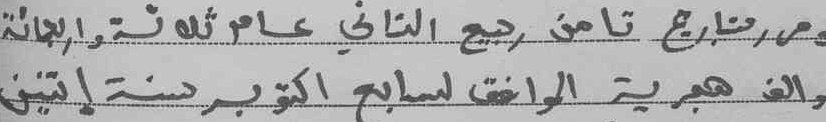 وحرر بتاريخ ثامن ربيع الثاني عام ثلاثة واربعمائة
والف هجرية الموافق لسابع اكتوبر سنة إثنين